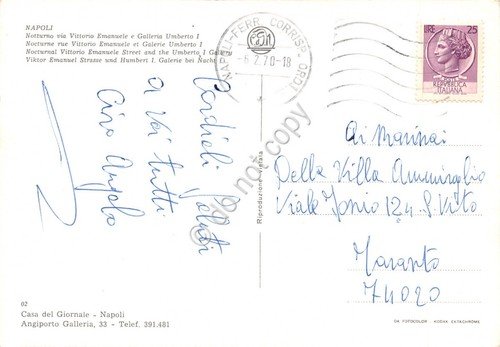 NAPOLI
Notturno via Vittorio Emanuele e Galleria Umberto I
Nocturne rue Vittorio Emanuele et Galerie Umberto I
Nocturnal Vittorio Emanuele Street and the Umberto I
Viktor Emanuel Strasse und Humbert I. Galerie bei Nacht
NAPOLI-FERR. CORRISP. ORD.
-8.2.70-18
LIRE 25
POSTE
REPVBBLICA
ITALIANA
Cordiali saluti
a Voi tutti
Ciao Angelo
Riproduzione vietata
do not copy
Ai Marinai
Della Villa Ammiraglio
Viale Jonio 124 S. Vito
Taranto
74020
02
Casa del Giornale - Napoli
Angiporto Galleria, 33 - Telef. 391.481
DA FOTOCOLOR - KODAK EKTACHROME